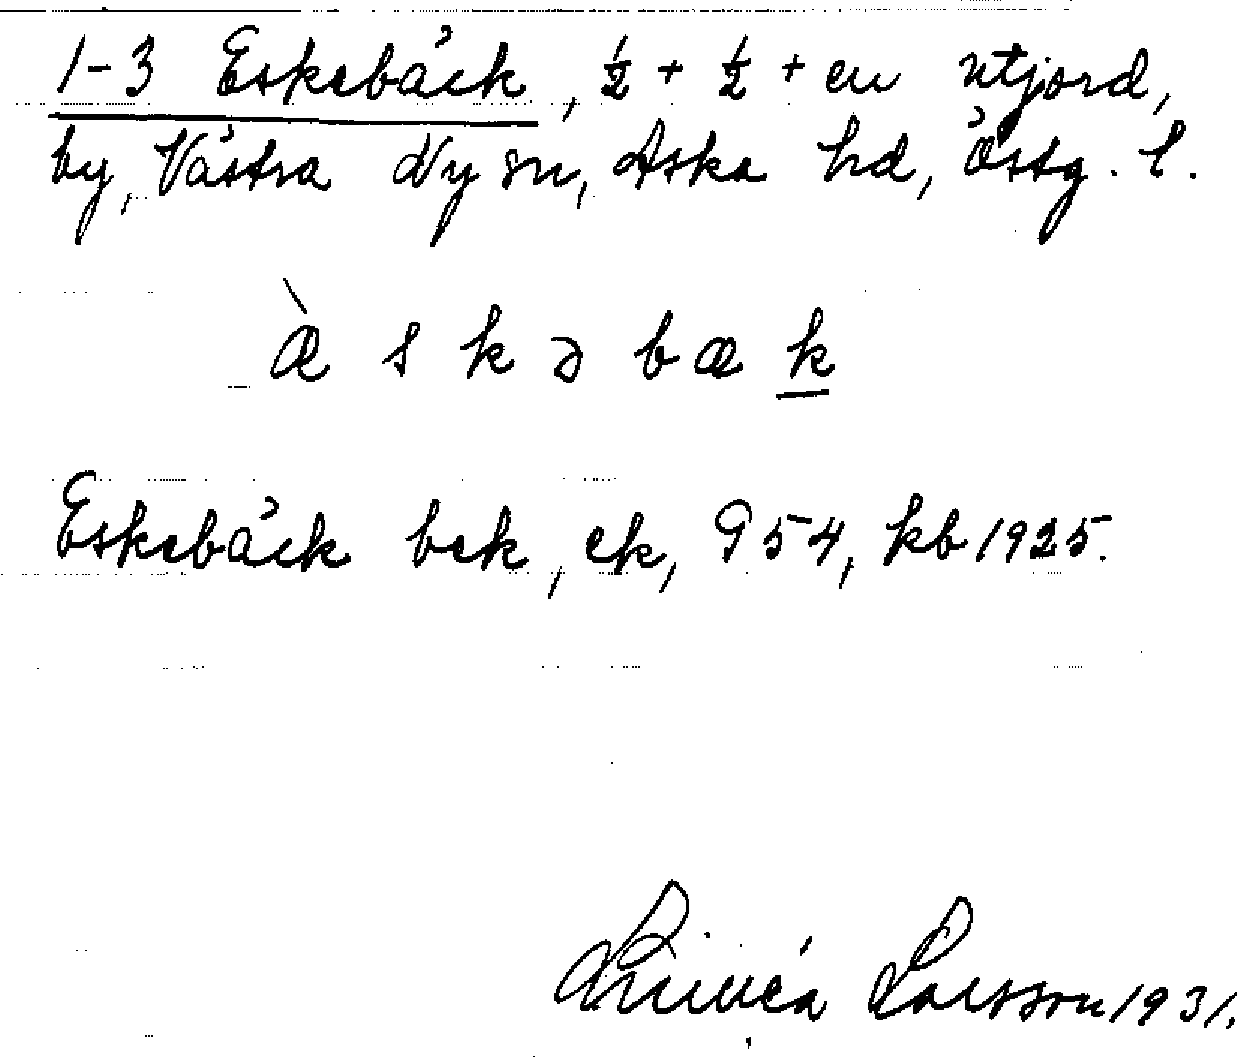 1-3 Eskebäck, ½ + ½ + en utjord,
by, Västra Ny sn, Aska hd, Östg. l.
æ̀ s k ə b æ k
Eskebäck bek, ek, 954, kb 1925.
Linnéa Larsson 1931.